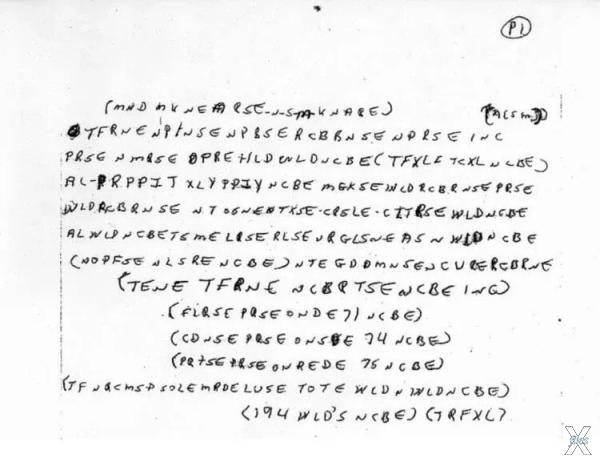 P1
(MND MKNEARSE-N-S-M-KNARE) (ACSM)
TFRNENPINSENPBSERCBBNSENPRSEINC
PRSENMRSEOPREHLDWLDNCBE(TFXLFTCXLNCBE)
AL-PRPPITXLYPPIYNCBEMGKSEWLDRCBRNSEPRSE
WLDRCBRNSENTOGNENTXSE-CRSLE-CITRSEWLDNCBE
ALWLDNCBETSMELRSERLSENRGLSNEASNWLDNCBE
(NOPFSENLSRENCBE)NTEGDDMNSENCURERCBRNE
(TENETFRNENCBRTSENCBEING)
(FLRSEPRSEONDE71NCBE)
(CDNSEPRSEONSDE74NCBE)
(PRTSEPRSEONREDE75NCBE)
(TFNRCMSPSOLEMRDELUSETOTEWLDNWLDNCBE)
(194WLD'SNCBE)(TRFXL)
X
files